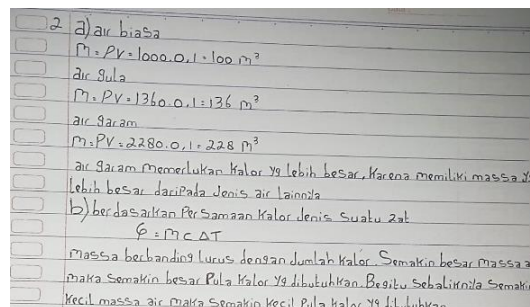 2 a) air biasa
m = PV = 1000.0,1 = 100 m³
air gula
m = PV = 1360.0,1 = 136 m³
air garam
m = PV = 2280.0,1 = 228 m³
air garam memerlukan kalor yg lebih besar, karena memiliki massa yg
lebih besar daripada Jenis air lainnya
b) berdasarkan Persamaan Kalor Jenis Suatu zat
Q = m c ΔT
massa berbanding lurus dengan Jumlah kalor. Semakin besar massa a
maka Semakin besar Pula kalor yg dibutuhkan. Begitu Sebaliknya Semak
kecil massa air maka Semakin kecil Pula kalor yg dibutuhkan